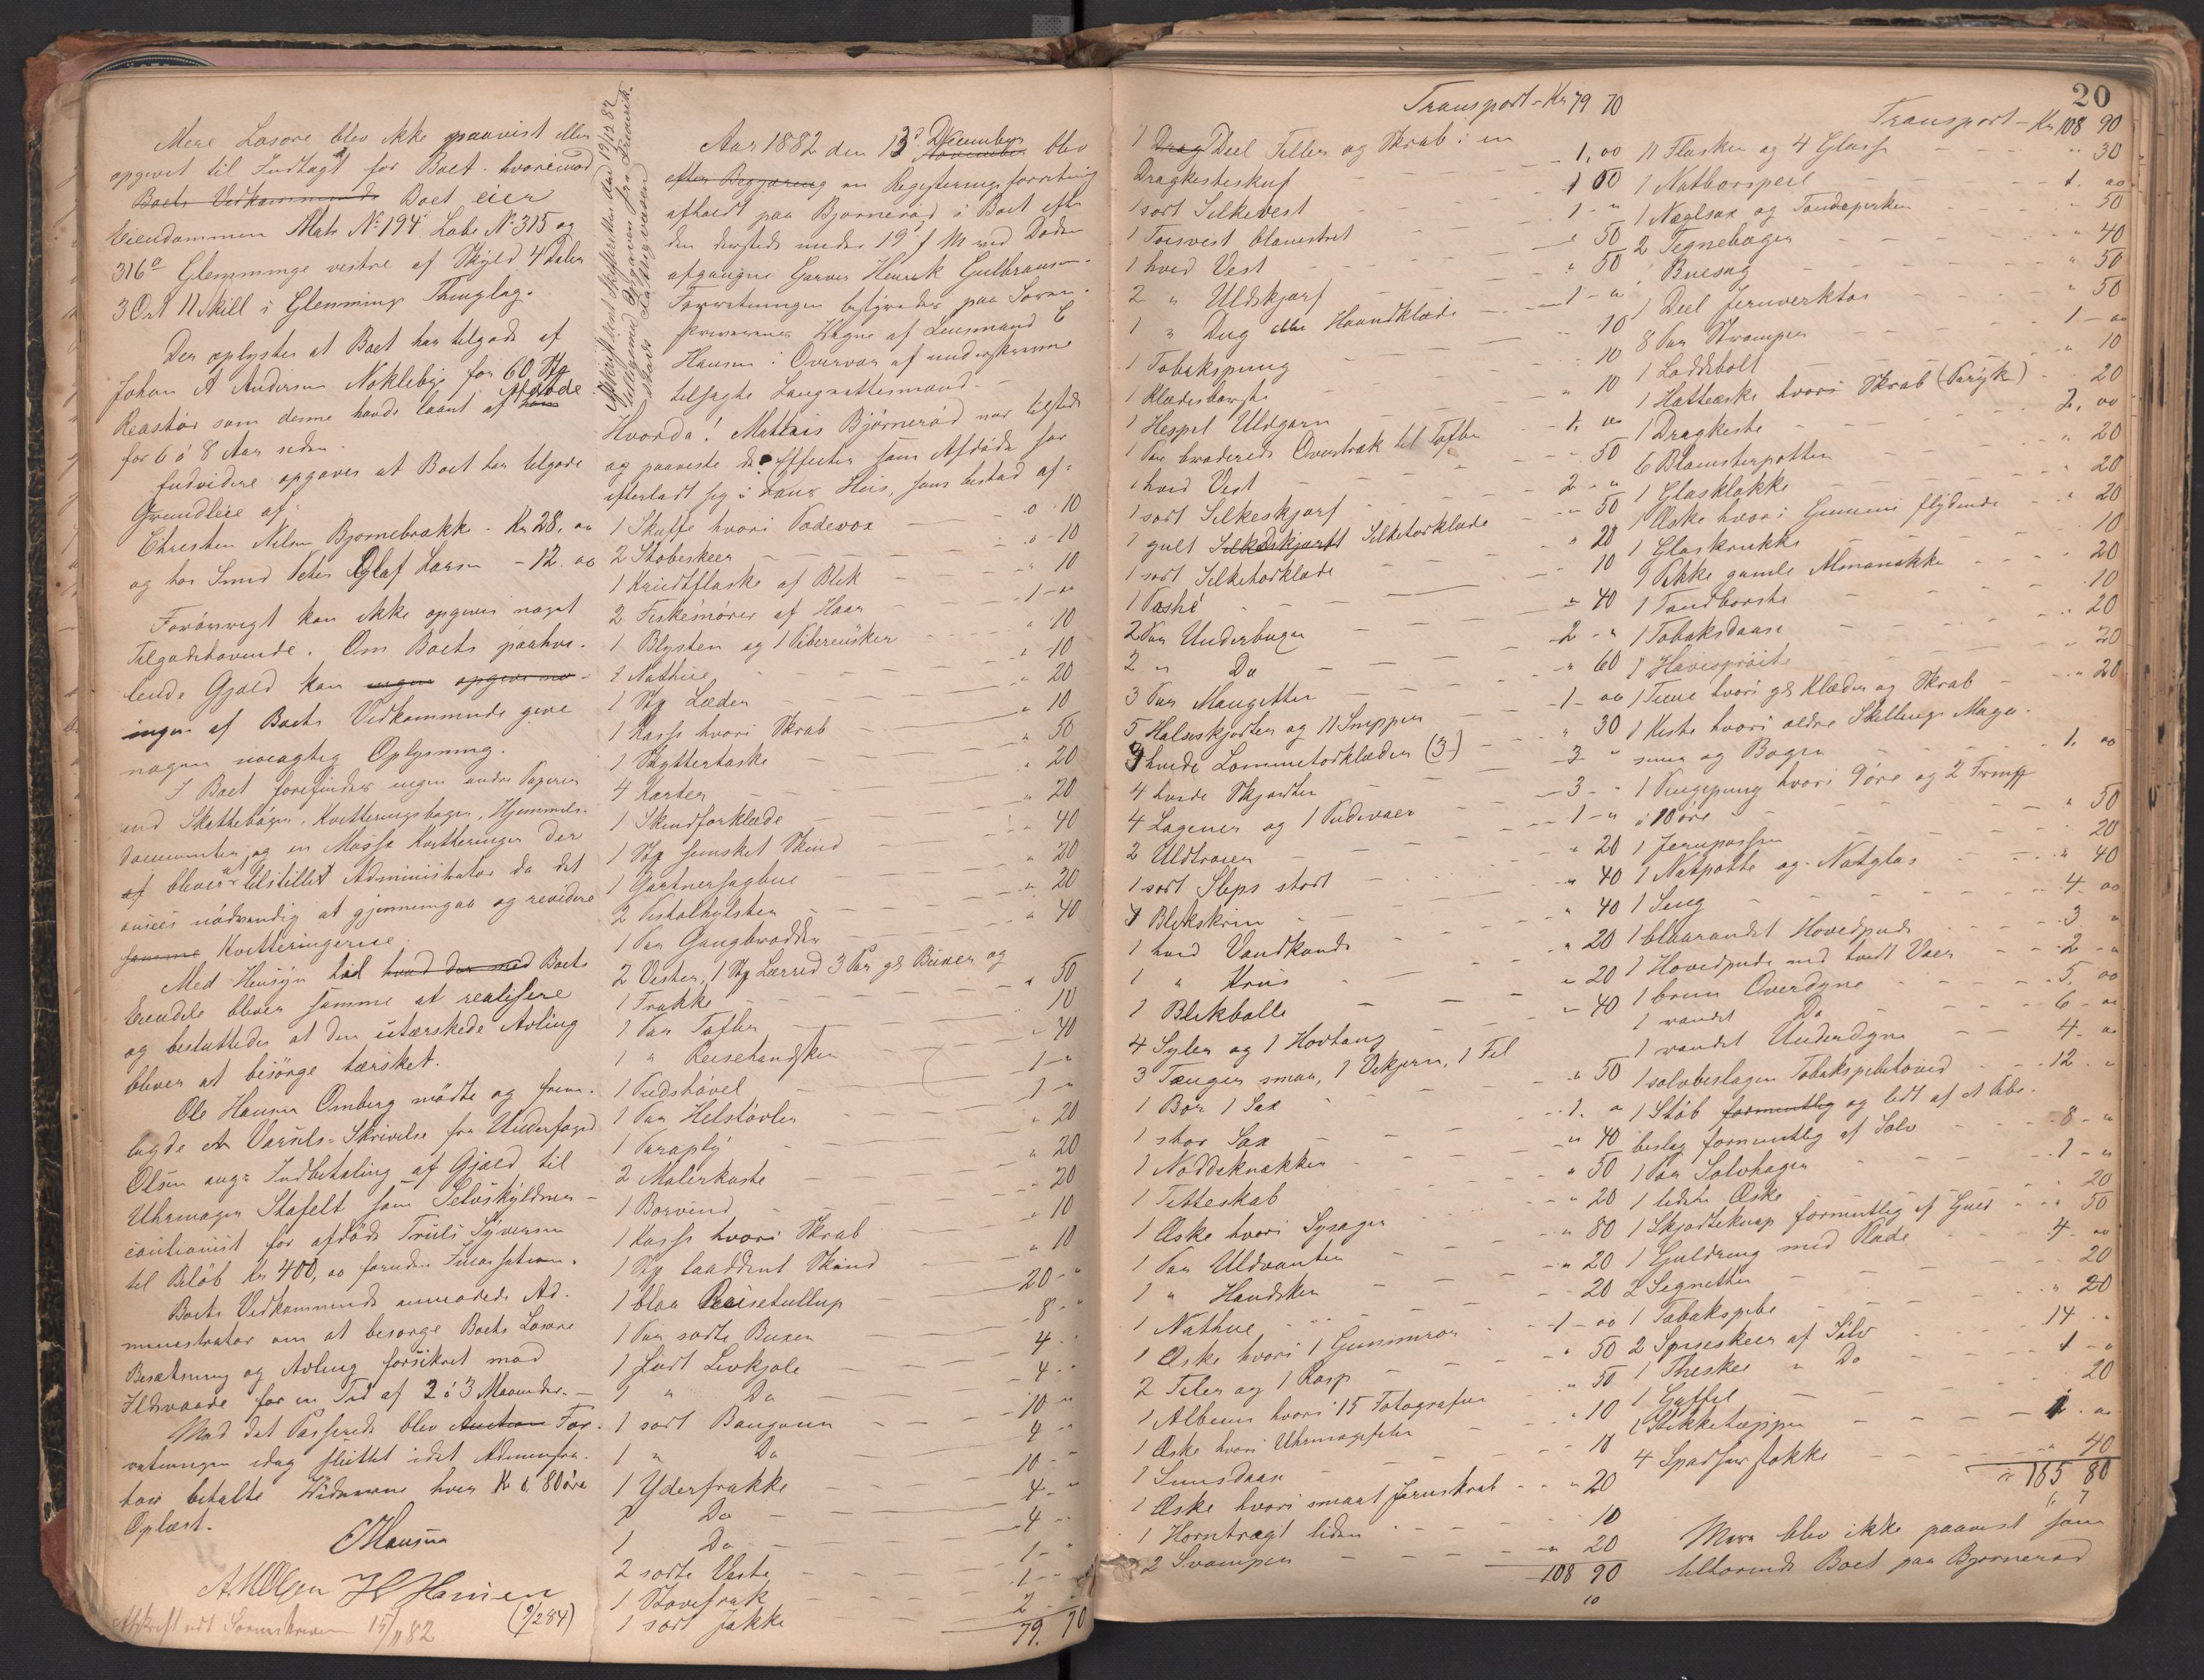 Mere Løsøre blev ikke paavist eller
opgivet til Indtægt for Boet hvorimod
Boets Vedkommende Boet eier
Eiendommen Mats No 194 Løbe No 315 og
316a Glemminge vestre af Skyld 4 Daler
3 Ort 11 Skill i Glemminge Thinglag.
Der oplystes at Boet har tilgode af
Johan A Andersen Nøkleby for 60 Stk
som denne havde laant af ham Afdøde
for 6 à 8 Aar siden.
Endvidere opgaves at Boet har tilgode
Grundleie af:
Christen Nilsen Bjørnebrække - Kr 28, oo
og hos Smed Peter Olaf Larsen - 12. oo
Forøvrigt kan ikke opgives noget
Tilgodehavende. Om Boets paahvi-
lende Gjæld kan ingen opgive no-
ingen af Boets Vedkommende give
nogen nøiagtig Oplysning.
I Boet forefindes ingen andre Papirer
end Skattebøger, Kvitteringsbøger, Hjemmels-
documenter og en Masse Kvitteringer Der
af bliver at tilstillet Administrator da det
ansees nødvendig at gjennemgaa og revidere
samme Kvitteringerne.
Med Hensyn til hvad der med Boets
Eiendele bliver samme at realisere
og besluttedes at den utærskede Avling
bliver at besørge tærsket.
Ole Hansen Omberg mødte og frem-
lagde et Varsels-Skrivelse fra Underfoged
Olsen ang: Indbetaling af Gjæld til
Uhrmager Stafelt som Selvskyldner-
cautionist for afdøde Truls Syversen
til Beløb Kr 400, oo foruden Incassation.
Boets Vedkommende anmodede Ad-
ministrator om at besørge Boets Løsøre
Besætning og Avling forsikret mod
Ildsvaade for en Tid af 2 à 3 Maaneder. -
Med det Passerede blev Auction For-
retningen idag sluttet idet Administra-
tor betalte Vidnerne hver Kr 0, 80 øre
Oplæst.
C Hansen
A M Olsen H Hansen
Afskrift udt Sorenskriveren 15/11 82 (9/284)
Afskrift sendt Skifteretten den 19/12 82
tilligemed Opgaven fra Fredrik-
stads Laugvæsen
Aar 1882 den 13d December November blev
efter Begjæring en Registreringsforretning
afholdt paa Bjørnerød i Boet efter
den dersteds under 19' f M ved Døden
afgangne Garver Henrik Gulbransen.
Forretningen bestyredes paa Soren-
skriverens Vegne af Lensmand C
Hansen i Overvær af underskrevne
tilsagte Laugrettesmænd. -
Hvorda! Mathis Bjørnerød var tilstede
og paaviste de Effecter som Afdøde har
efterladt sig i hans Hus, som bestod af:
1 Skuffe hvori Podevox - o - 10
2 Støbeskeer - o - 10
1 Krudtflaske af Blek - " 10
2 Fiskesnører af Haar - 1 - oo
1 Blysten og 1 Piberensker - " 10
1 Nathue - " 10
1 Stk Læder - " 20
1 Kasse hvori Skrab - " 10
1 Skyttertaske - " 50
4 Karter - " 20
1 Skindforklæde - " 20
1 Stk semsket Skind - " 40
1 Gartnersagbue - " 20
2 Pistolhylster - " 20
1 Par Gangbrodder - " 40
2 Vester, 1 Stk Lærred 3 Par gl Buxer og
1 Frakke - " 50
1 Par Tøfler - 10
1 " Reisehandsker - " 40
1 Pudshøvel - 1 - "
1 Par Helstøvler - 1 - "
1 Paraply - " 20
2 Malerkoste - " 20
1 Borvind - " 20
1 Kasse hvori Skrab - " 10
1 Stk laaddent Skind - " 10
1 blaa Reisetullup - 20 - "
1 Par sorte Buxer - 8 - "
1 sort Livkjole - 4 - "
1 " Do - 4 - "
1 sort Bonjour - 10 - "
1 " Do - 4 - "
1 Yderfrakke - 10 - "
1 Do - 4 - "
1 Do - 4 - "
2 sorte Veste - 1 - "
1 Stovefrak - 1 - "
1 sort Jakke - 2 - "
79. 70
Transport - Kr 79 70
1 Drag Deel Filler og Skrab i en
Dragkisteskuf - 1, oo
1 sort Silkevest - 1 00
1 Toisvest blaaestret - 1 - "
1 hvid Vest - " 50
2 " Uldskjærf - " 50
1 " Dug eller Haandklæde - 1 - "
1 Tobakspung - " 10
1 Klædesbørste - " 10
1 Hespel Uldgarn - " 10
1 Par broderede Overtræk til Tøfler - 1. oo
1 hvid Vest - " 50
1 sort Silkeskjærf - 2 - "
1 gult Silkeskjærf Silketørklæde - " 50
1 sort Silketørklæde - " 20
1 Vashé - " 10
2 Par Underbuxer - " 40
2 " Do - 2 - "
3 Par Mangetter - " 60
5 Halsskjorter og 11 Snipper - 1 - oo
9 hvide Lommetørklæder (3) - " 30
4 hvide Skjorter - 3 - "
4 Lagener og 1 Pudevaer - 3 - "
2 Uldtrøier - 1 - "
1 sort Slips stort - " 20
4 Blekskrin - " 40
1 hvid Vandkande - " 40
1 " Krus - " 20
1 Blekbolle - " 20
4 Syler og 1 Hovtang - " 40
3 Tænger smaa, 1 Dekjern, 1 Fil
1 Bor 1 Sax - " 50
1 stor Sax - 1. "
1 Nøddeknækker - " 40
1 Titteskab - " 50
1 Æske hvori Sysager - " 20
1 Par Uldvanter - " 80
1 " Handsker - " 20
1 Nathue - 20
1 Æske hvori 1 Gummiror - 1 - oo
2 Filer og 1 Rasp - " 50
1 Album hvori 15 Fotografier - " 50
1 Æske hvori Uhrmagerfiler - " 10
1 Snusdaase - 10
1 Æske hvori smaat Jernskrab - " 20
1 Horntragt liden - 10
2 Svamper - " 20
108 90
20
Transport - Kr 108 90
11 Flasker og 4 Glasse - " 30
1 Natborspeil - 1. oo
1 Næglsax og Tandeperker - " 50
2 Tegnebøger - " 40
1 Buesag - " 50
1 Deel Jernverktøi - " 50
8 Par Strømper - 1 - oo
1 Loddebolt - " 10
1 Hatteæske hvori Skrab (Paryk) - 20
1 Dragkiste - 2, oo
6 Blomsterpotter - " 20
1 Glasklokke - " 20
1 Æske hvori Gummi flydende - " 20
1 Glaskrukke - 10
9 Pakke gamle Almanakke - " 20
1 Tandbørste - 10
1 Tobaksdaase - " 20
1 Havesprøite - " 20
1 Tiene hvori gl Klæder og Skrab - " 20
1 Kiste hvori ældre Skillings Maga-
siner og Bøger - 1. oo
1 Pengepung hvori 9 øre og 2 Frmkr
à 10 øre - " 50
1 Jernpasser - 20
1 Natpotte og Natglas - " 40
1 Seng - 4. oo
1 blaarandet Hovedpude - 3 "
1 Hovedpude med hvidt Vaer - 2 - "
1 brun Overdyne - 5. oo
1 randet Do - 6 - "
1 randet Underdyne - 4 - "
1 sølvbeslagen Tobakspibehoved - 12. "
1 Støb formentlig og lidt af et Pibe-
beslag formentlig af Sølv - 8 - "
1 Par Sølvhager - 1 - "
1 liden Æske - 20
1 Skjorteknap formentlig af Guld - " 50
1 Guldring med Plade - 4. oo
2 Segnetter - 20
1 Tobakspibe - " 20
2 Spiseskeer af Sølv - 14 "
1 Theskee " Do - 1 - "
1 Gaffel - 20
1 Stikketæppe - 1. oo
4 Spadserstokke - " 40
" 165 80
Mere blev ikke paavist som
tilhørende Boet paa Bjørnerød